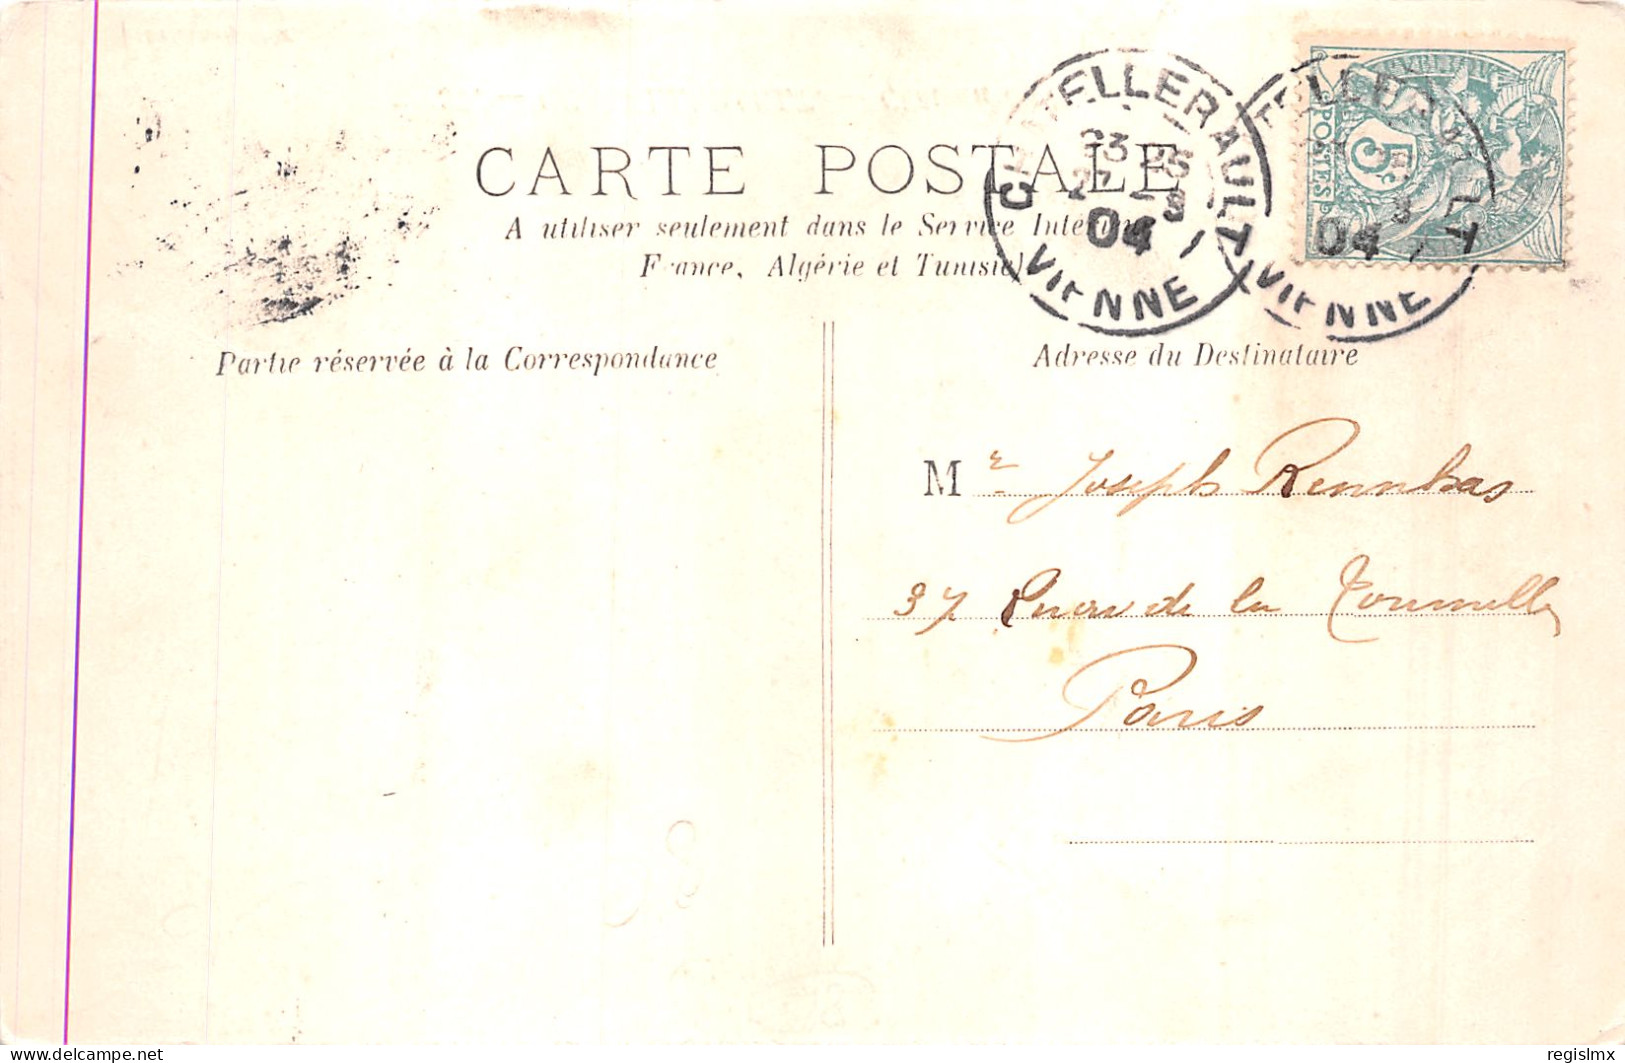 CARTE POSTALE
A utiliser seulement dans le Service Intérieur
France, Algérie et Tunisie
CHATELLERAULT
23 15
27 -9
04
VIENNE
5c
POSTES
04
VIENNE
Partie réservée à la Correspondance
Adresse du Destinataire
Mr Joseph
37 de la Tournelle
Paris
delcampe.net
regislmx